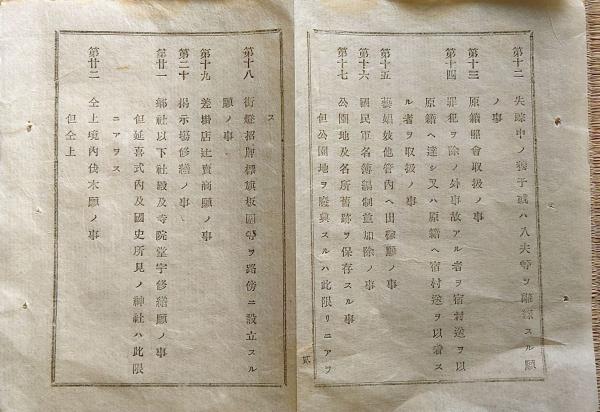 第十二 失踪中ノ養子或ハ入夫等ヲ離縁スル願
ノ事
第十三 原籍照會取扱ノ事
第十四 罪犯ヲ除ノ外事故アル者ヲ宿村送ヲ以
原籍ヘ達シ又ハ原籍ヘ宿村送ヲ以着ス
ル者ヲ取扱ノ事
第十五 藝娼妓他管内ヘ出稼願ノ事
第十六 國民軍名簿編制並加除ノ事
第十七 公園地及名所舊跡ヲ保存スル事
但公園地ヲ廢興スルハ此限リニアラ
貳
ス
第十八 街燈招牌標旗板圍等ヲ路傍ニ設立スル
願ノ事
第十九 差掛店辻賣商願ノ事
第二十 揭示場修繕ノ事
第廿一 鄕社以下社殿及寺院堂宇修繕願ノ事
但延喜式內及國史所見ノ神社ハ此限
ニアラス
第廿二 仝上境內伐木願ノ事
但仝上